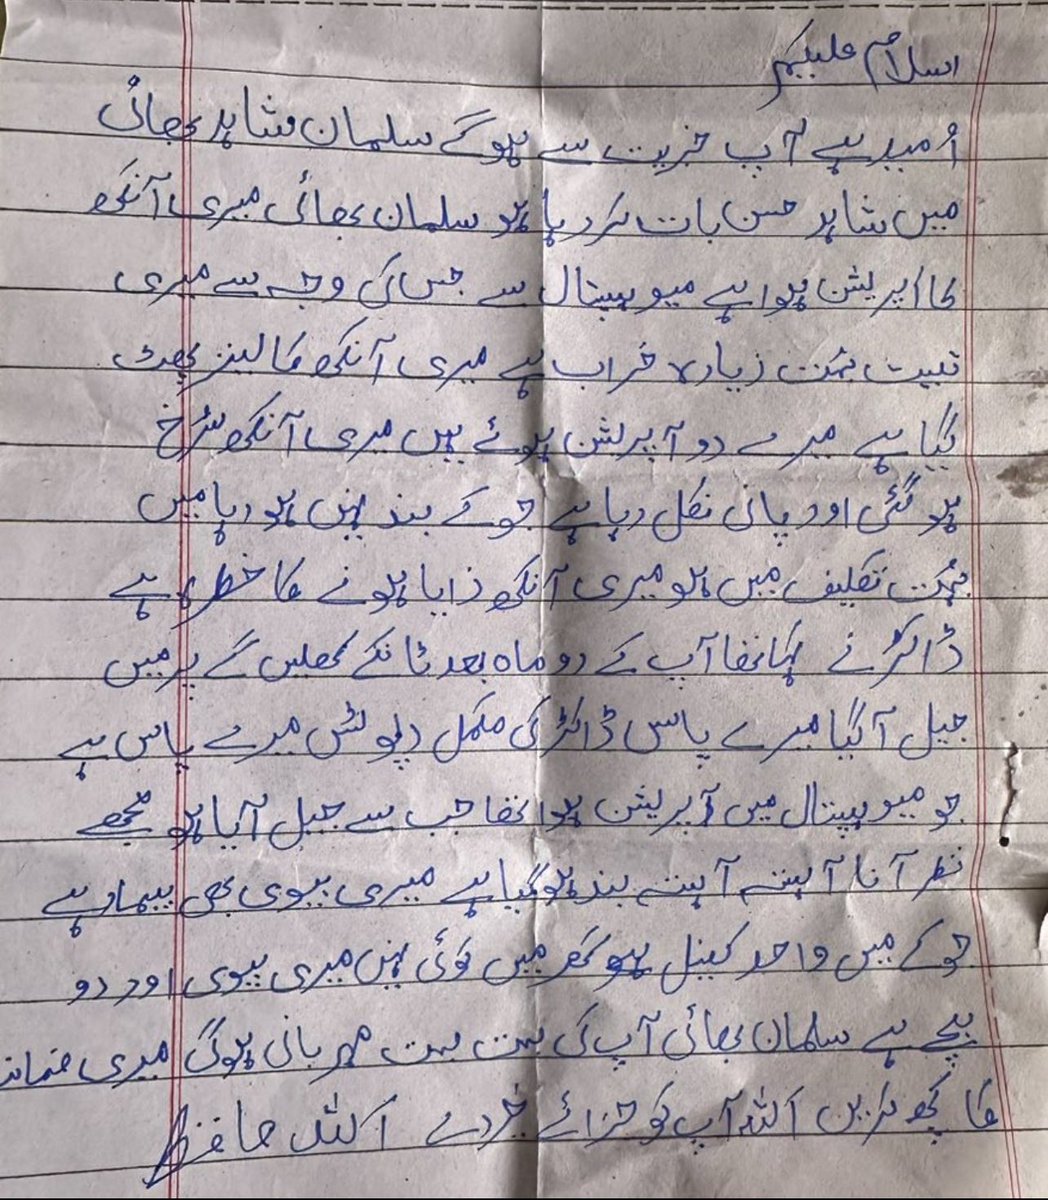 اسلام علیکم
اُمید ہے آپ خریت سے ہوگے سلمان شاہد بھائی
میں شاہد حسن بات کر رہا ہو سلمان بھائی میری آنکھ
کا اپریشن ہوا ہے میو ہسپتال سے جس کی وجہ سے میری
تبیت بہت زیادہ خراب ہے میری آنکھ کا لینز پھٹ
گیا ہے میرے دو آپریشن ہوئے ہیں میری آنکھ سُرخ
ہو گئی اور پانی نکل رہا ہے جو کے بند نہیں ہو رہا میں
بہت تکلیف میں ہو میری آنکھ زایا ہونے کا خطرہ ہے
ڈاکٹر نے کہا تھا آپ کے دو ماہ بعد ٹانکے کھلیں گے پر میں
جیل آ گیا میرے پاس ڈاکٹر کی مکمل رپوٹس میرے پاس ہے
جو میو ہسپتال میں آپریشن ہوا تھا جب سے جیل آیا ہو مجھے
نظر آنا آہستہ آہستہ بند ہو گیا ہے میری بیوی بھی بیمار ہے
جو کے میں واحد کفیل ہو گھر میں کوئی نہیں میری بیوی اور دو
بچے ہے سلمان بھائی آپ کی بہت بہت مہربانی ہوگی میری ضمانت
کا کچھ کریں اللہ آپ کو جزائے خیر دے اللہ حافظ